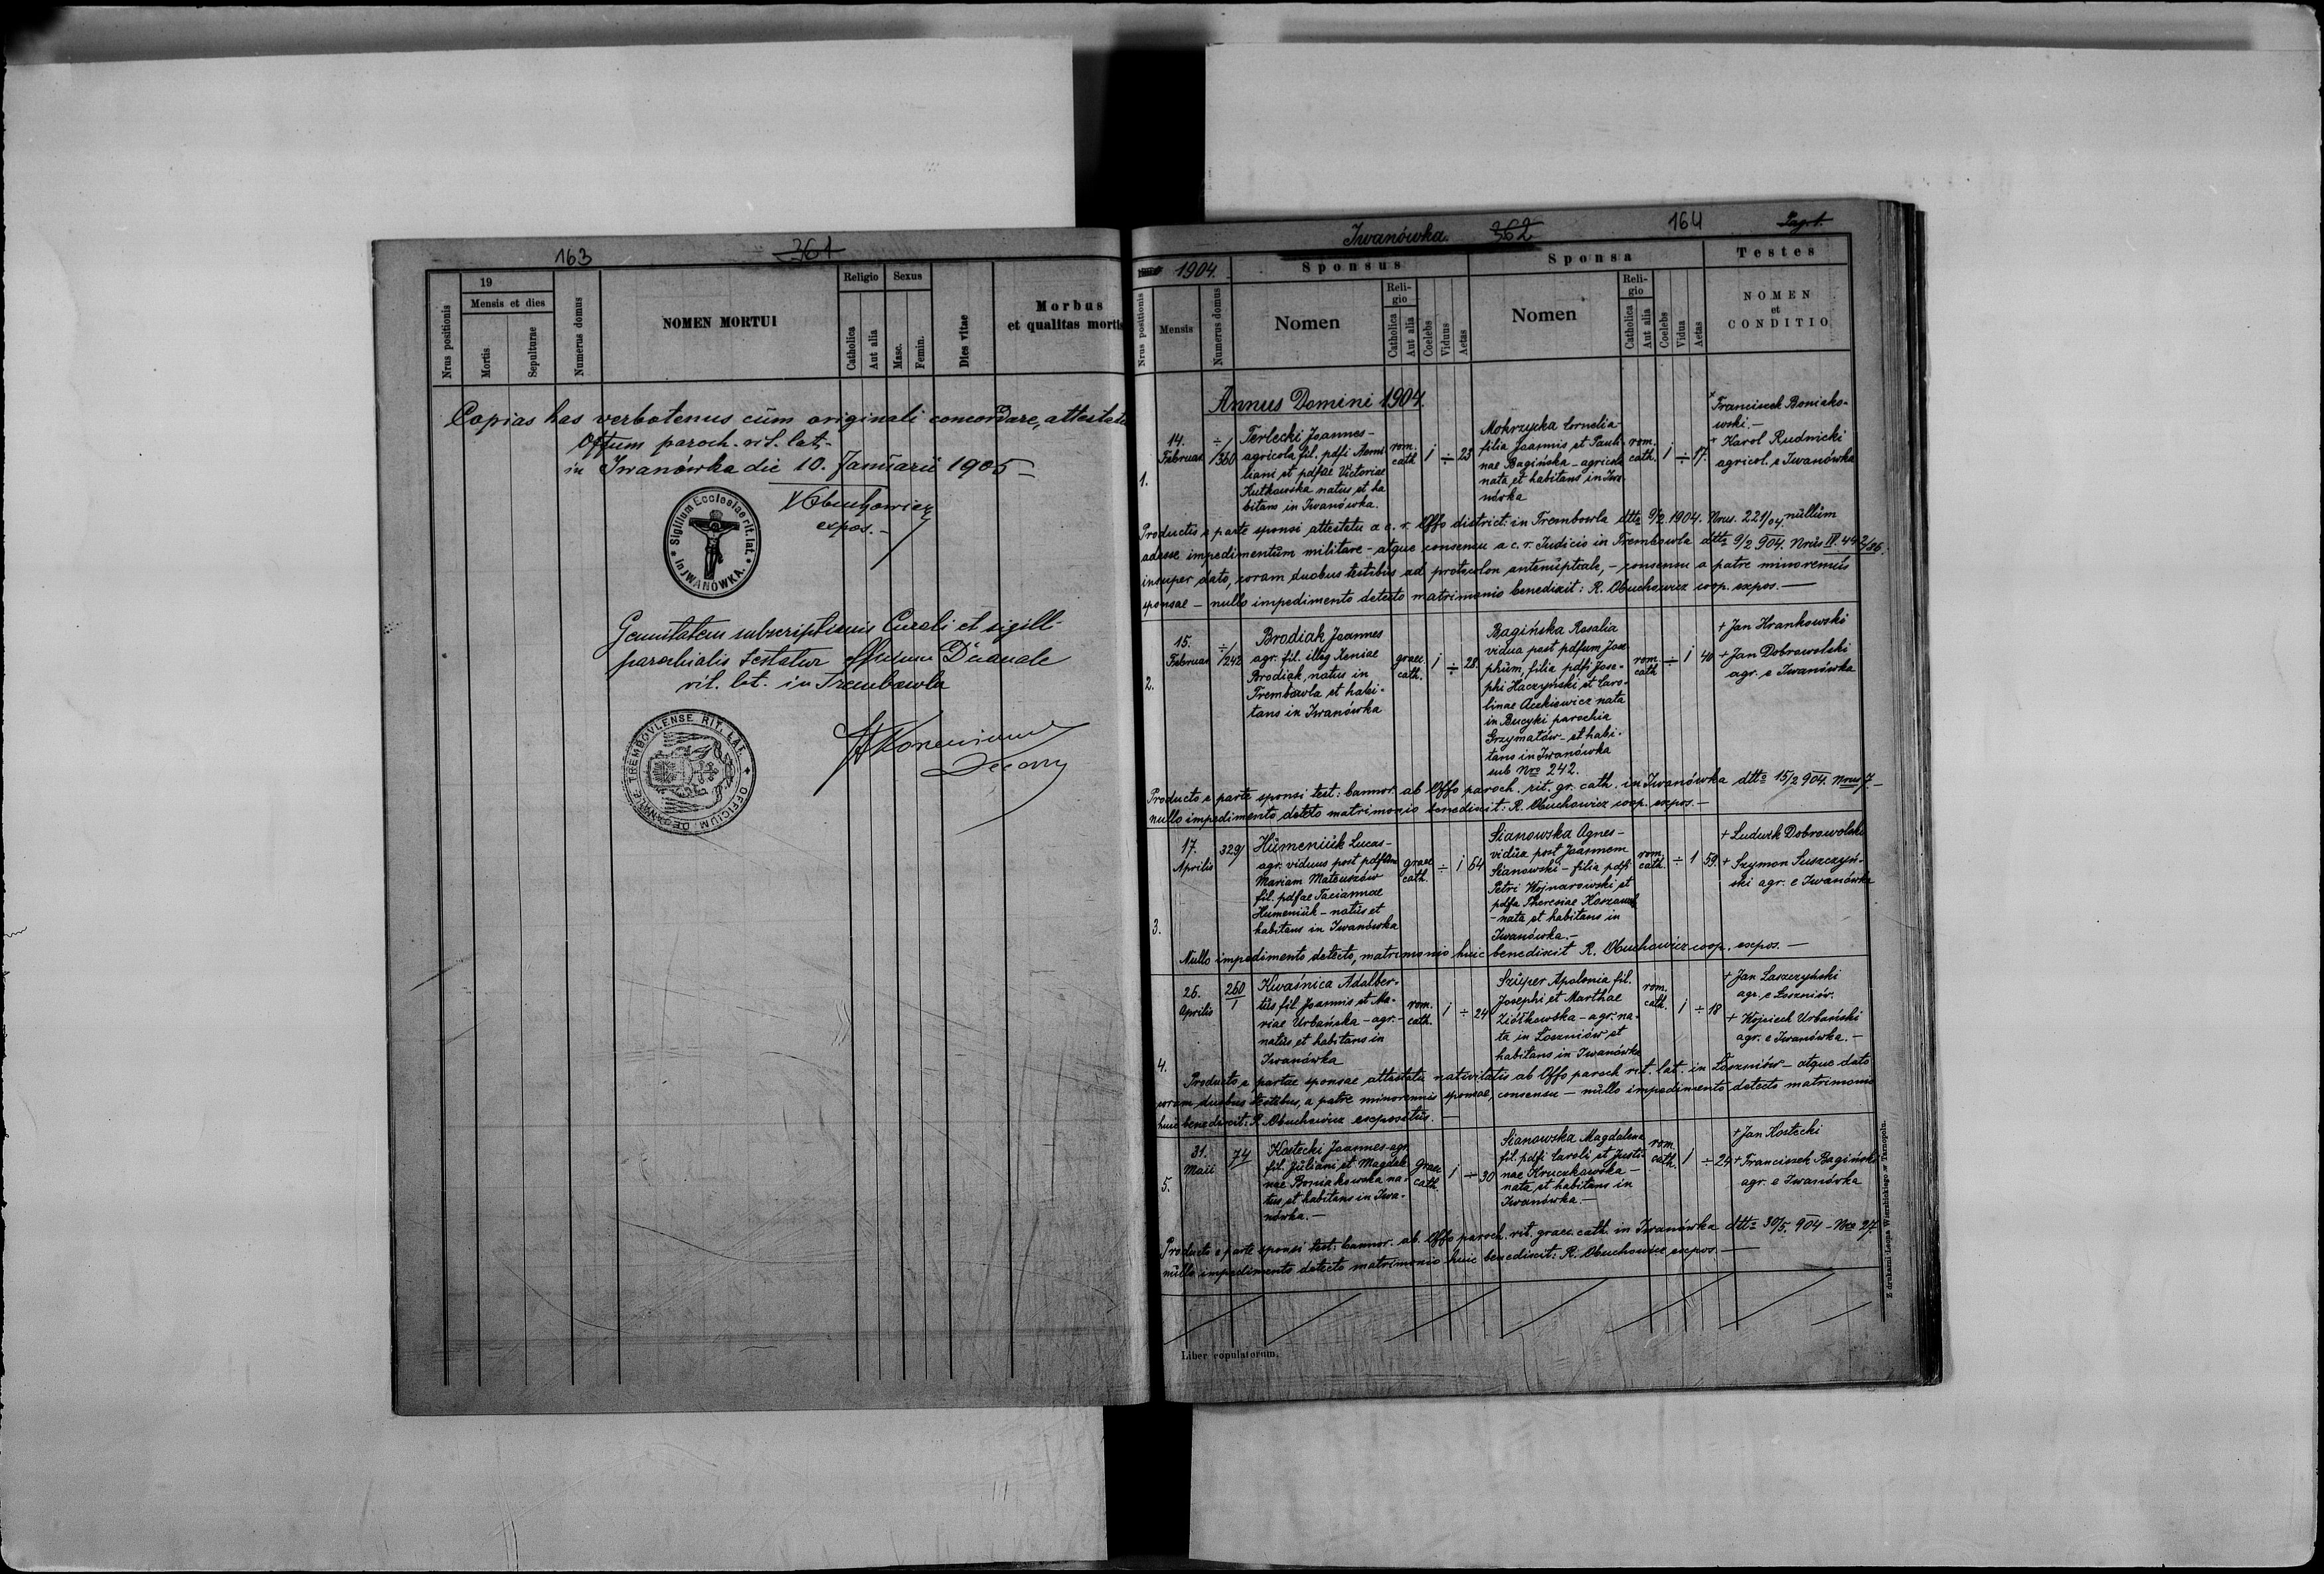 163
361
19
Mensis et dies
Nrus positionis
Mortis
Sepulturae
Numerus domus
NOMEN MORTUI
Religio
Catholica
Aut alia
Sexus
Masc.
Femin.
Dies vitae
Morbus
et qualitas mortis
Copias has verbotenus cum originali concordare, attestatu
Offum paroch. rit. lat.
in Iwanówka die 10. Januarii 1905
Obuchowicz
expos.
Sigillum Ecclesiae rit. lat.
in JWANÓWKA.
subscriptionis Curati et sigill.
parochialis testatur Officium Decanale
rit. lat. in Trembowla
OFFICIUM DECANALE TREMBOVLENSE RIT. LAT.
Iwanówka.
362
164
Pag 1.
1904.
Sponsus
Sponsa
Testes
Nrus positionis
Mensis
Numerus domus
Nomen
Religio
Catholica
Aut alia
Coelebs
Viduus
Aetas
Nomen
Religio
Catholica
Aut alia
Coelebs
Vidua
Aetas
NOMEN
et
CONDITIO
Annus Domini 1904.
1.
14.
Februar.
÷/360
Terlecki Joannes-
agricola fil. pdfi
liani et pdfae Victoriae
Kutkowska natus et ha
bitans in Iwanówka.
rom.
cath
1 ÷ 23
Mokrzycka Cornelia
filia Joannis et Pauli
nae Bagińska - agricola
nata et habitans in Iwa
nówka
rom.
cath.
1 ÷ 17.
+ Franciszek Boniako-
wski. -
+ Karol Rudnicki
agricol. e Iwanówka
Productis e parte sponsi attestatu a c. r. Offo district. in Trembowla dtto 9/2 1904. Nrus. 221/04 nullum
adesse impedimentum militare - atque consensu a c. r. Judicio in Trembowla dtto 9/2 904. Nrus IV.
insuper dato, coram duobus testibus ad protocolon antenuptiale, - consensu a patre minorennis
sponsae - nullo impedimento detecto matrimonio benedixit: R. Obuchowicz coop. expos. -
2.
15.
Februar
÷/242
Brodiak Joannes
agr. fil. illeg Xeniae
Brodiak, natus in
Trembowla et habi-
tans in Iwanówka
graec
cath.
1 ÷ 28.
Bagińska Rosalia
vidua post pdfum Jose
phum, filia pdfi Jose-
phi Haczyński et Caro-
linae Acekiewicz nata
in Bucyki parochia
Grzymałów - et habi-
tans in Iwanówka
sub Nro 242.
rom
cath
÷ 1 40
+ Jan Hrankowski
+ Jan Dobrowolski
agr. e Iwanówka
Producto e parte sponsi test: bannor. ab Offo paroch. rit. gr. cath. in Iwanówka dtto 15/2 904. Nrus 7. -
nullo impedimento detecto matrimonio benedixit: R. Obuchowicz coop. expos. -
3.
17.
Aprilis
329/
Humeniuk Lucas-
agr. viduus post pdfam
Mariam Mateuszów
fil. pdfae Tacianae
Humeniuk - natus et
habitans in Iwanówka
graec
cath.
÷ 1 64
Sianowska Agnes-
vidua post Joannem
Sianowski - filia pdfi
Petri Wojnarowski et
pdfa Theresiae
- nata et habitans in
Iwanówka. -
rom.
cath.
÷ 1 59.
+ Ludwik Dobrowolski
+ Szymon Suszczyń-
ski agr. e Iwanówka
Nullo impedimento detecto, matrimonio huic benedixit R. Obuchowicz coop. expos. -
4.
26.
Aprilis
260
1
Kwaśnica Adalber-
tus fil Joannis et Ma-
riae Urbańska - agr.-
natus et habitans in
Iwanówka
rom.
cath.
1 ÷ 24
Szuper Apolonia fil.
Josephi et Marthae
Ziółkowska - agr. na-
ta in Łoszniów et
habitans in Iwanówka
rom.
cath.
1 ÷ 18
+ Jan Laszczyński
agr. e Łoszniów.
+ Wojciech Urbański
agr. e Iwanówka. -
Producto e partae sponsae attestatu nativitatis ab Offo paroch rit. lat. in Łoszniów - atque dato
coram duobus testibus, a patre minorennis sponsae, consensu - nullo impedimento detecto matrimonio
huic benedixit: R. Obuchowicz expositus. -
5.
31.
Maii
74
Kostecki Joannes-agr.
fil. Juliani et Magdale
nae Boniakowska na-
tus et habitans in Iwa-
nówka. -
Graec
cath.
1 ÷ 30
Sianowska Magdalena
fil. pdfi Caroli et Justi-
nae Kruczkowska -
nata et habitans in
Iwanówka. -
rom
cath.
1 ÷ 24
+ Jan Kostecki
+ Franciszek Bagiński
agr. e Iwanówka
Producto e parte sponsi test: bannor. ab. Offo paroch. rit. graec. cath. in Iwanówka dtto 30/5. 904 - Nro 27.
nullo impedimento detecto matrimonio huic benedixit: R. Obuchowicz expos. -
Liber copulatorum.
Z drukarni Leona Wierzbickiego w Tarnopolu.